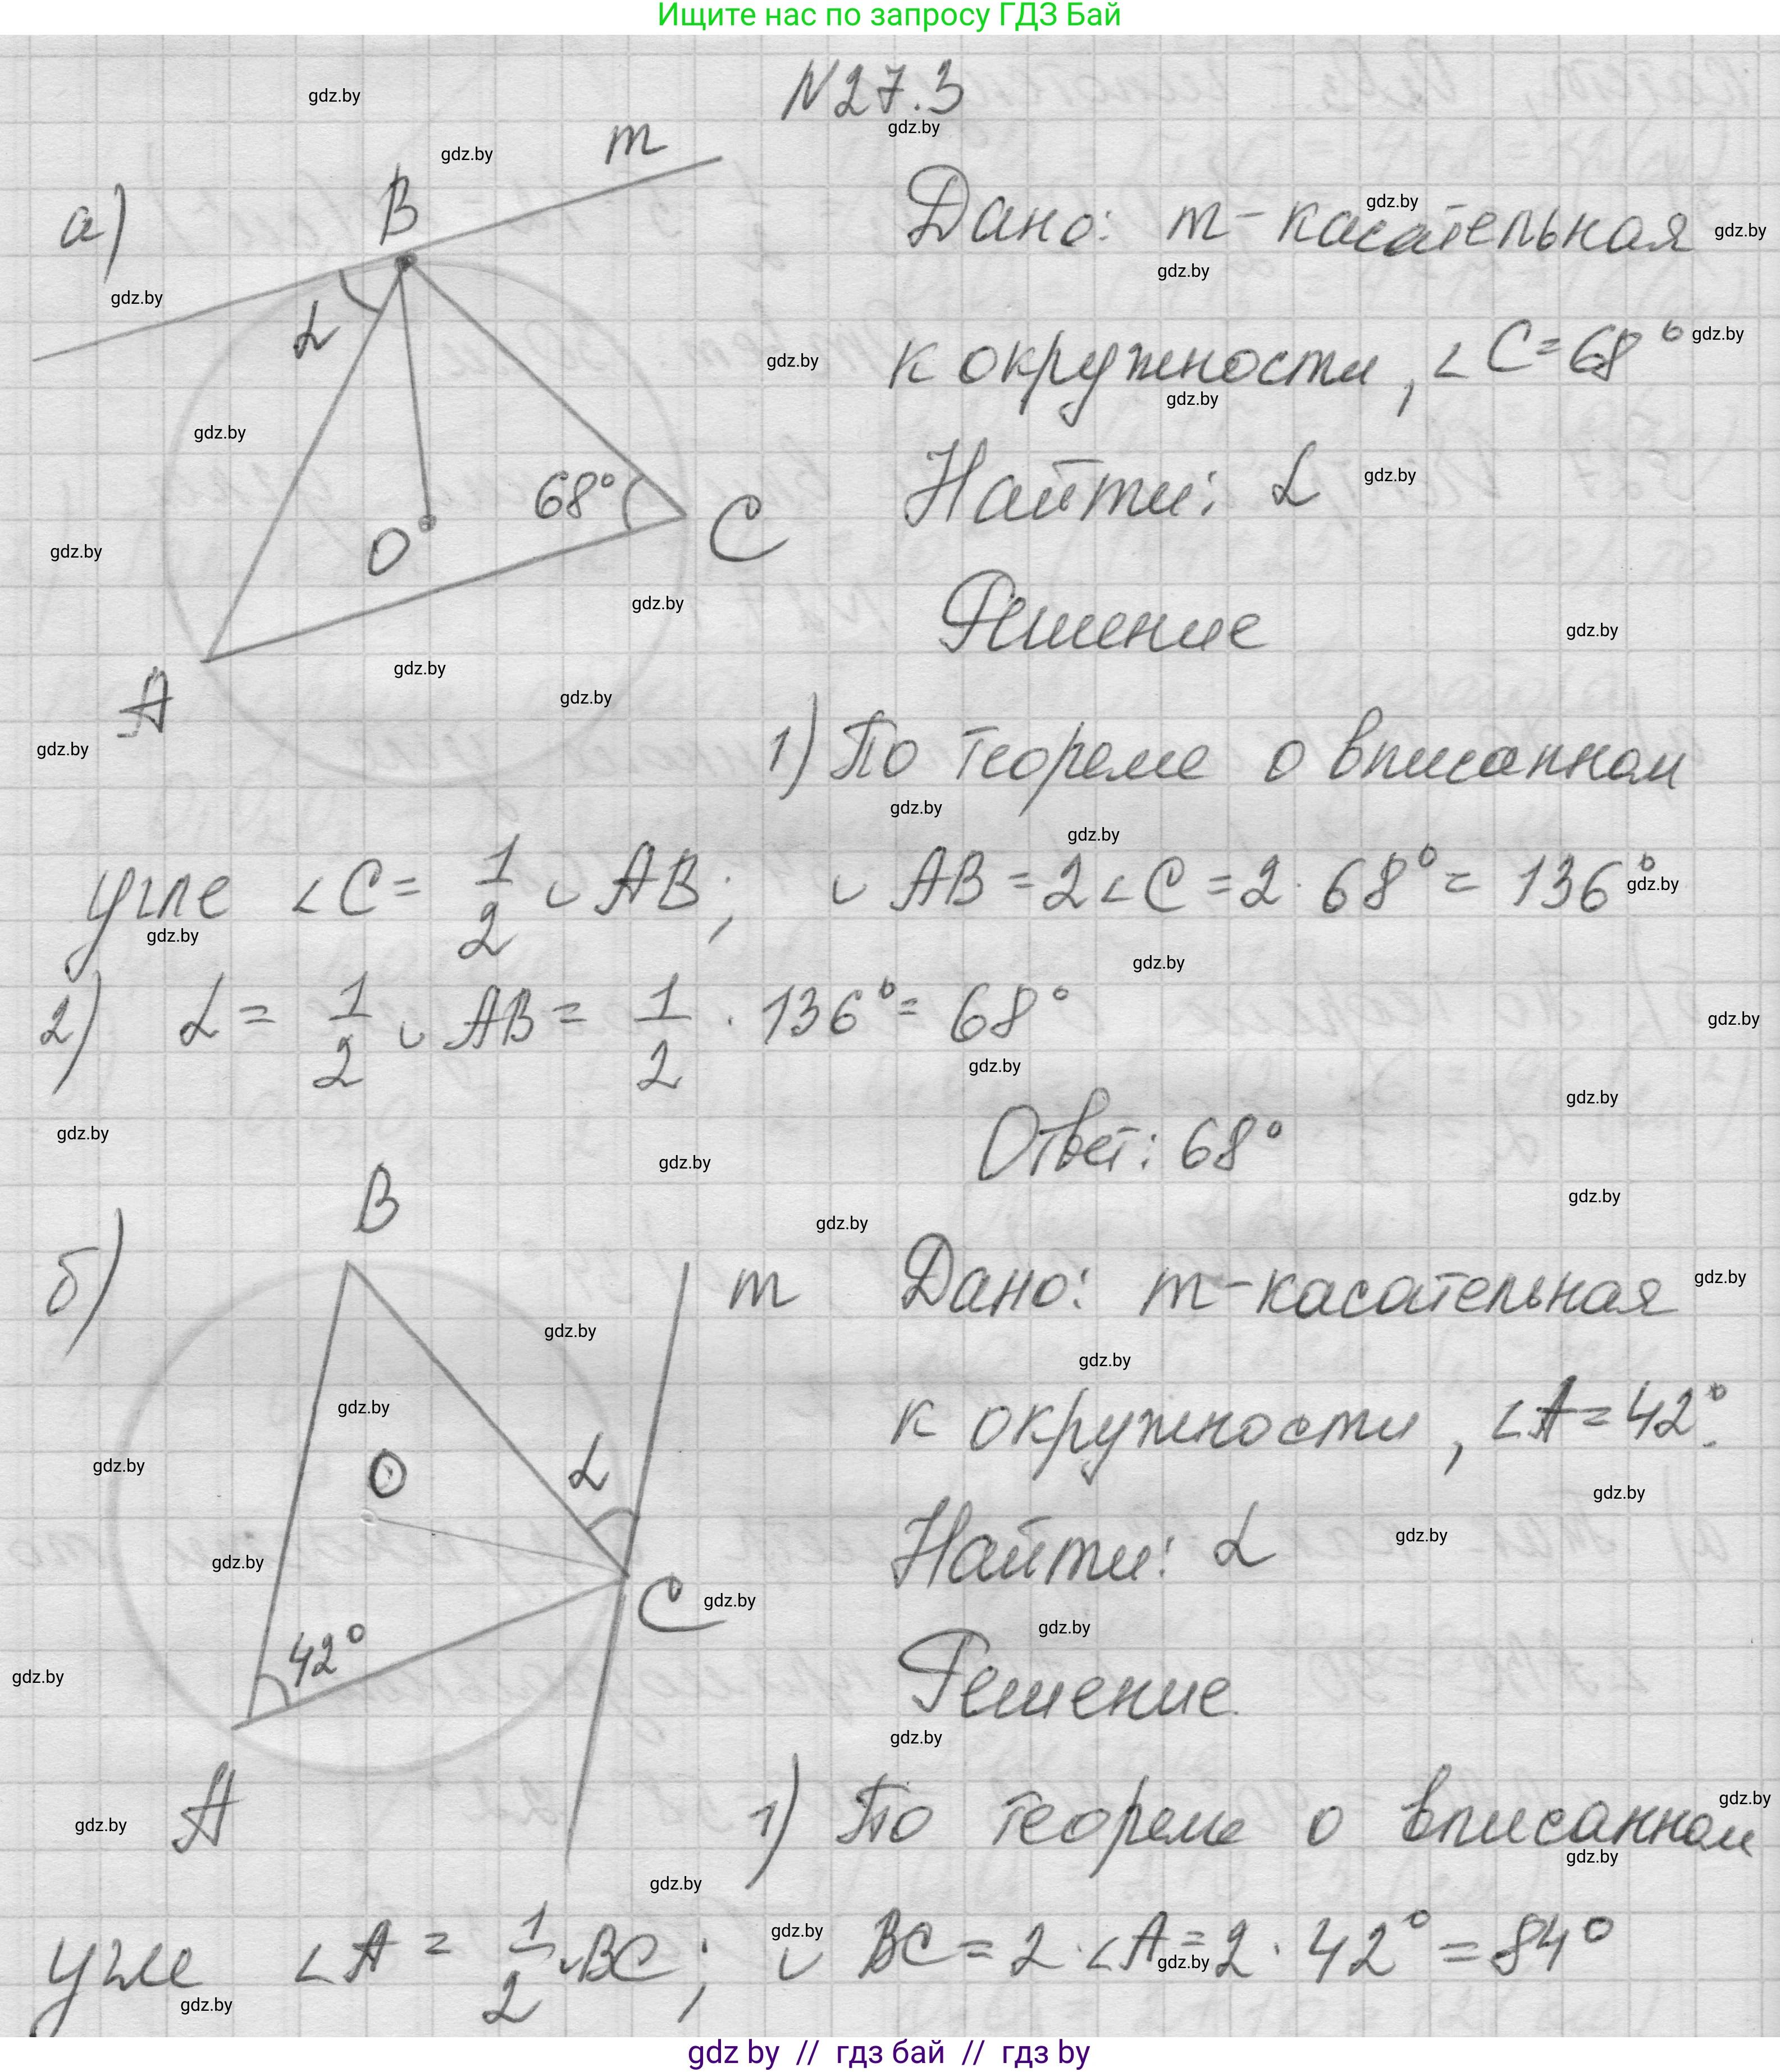 Ищите нас по запросу ГДЗ Бай
N27.3
а)
B
m
α
O
68°
C
A
Дано: m-касательная
к окружности, ∠C=68°
Найти: α
Решение
1) По теореме о вписанном
угле ∠C = 1/2 ◡ AB; ◡ AB = 2∠C = 2 · 68° = 136°
2) α = 1/2 ◡ AB = 1/2 · 136° = 68°
Ответ: 68°
б)
B
m
O
α
C
42°
A
Дано: m-касательная
к окружности, ∠A=42°.
Найти: α
Решение.
1) По теореме о вписанном
угле ∠A = 1/2 ◡BC; ◡ BC = 2·∠A = 2 · 42° = 84°
gdz by // гдз бай // гдз by